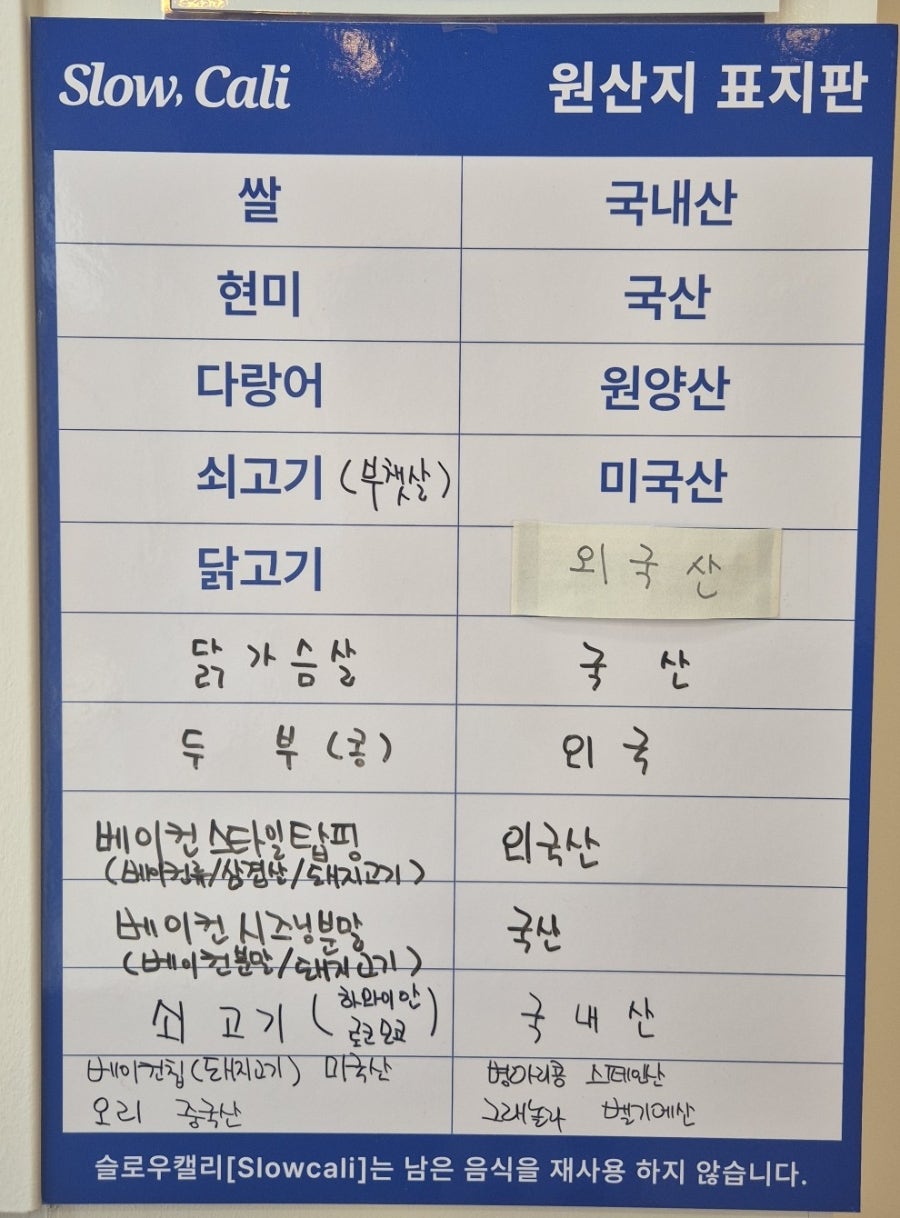 Slow, Cali 원산지 표지판
쌀 국내산
현미 국산
다랑어 원양산
쇠고기 (부챗살) 미국산
닭고기 외국산
닭가슴살 국산
두부(콩) 외국
베이컨스타일탑핑 외국산
(베이컨류/삼겹살/돼지고기)
베이컨시즈닝분말 국산
(베이컨분말/돼지고기)
쇠고기 (하와이안 로코모코) 국내산
베이컨칩(돼지고기) 미국산 병아리콩 스페인산
오리 중국산 그래놀라 벨기에산
슬로우캘리[Slowcali]는 남은 음식을 재사용 하지 않습니다.